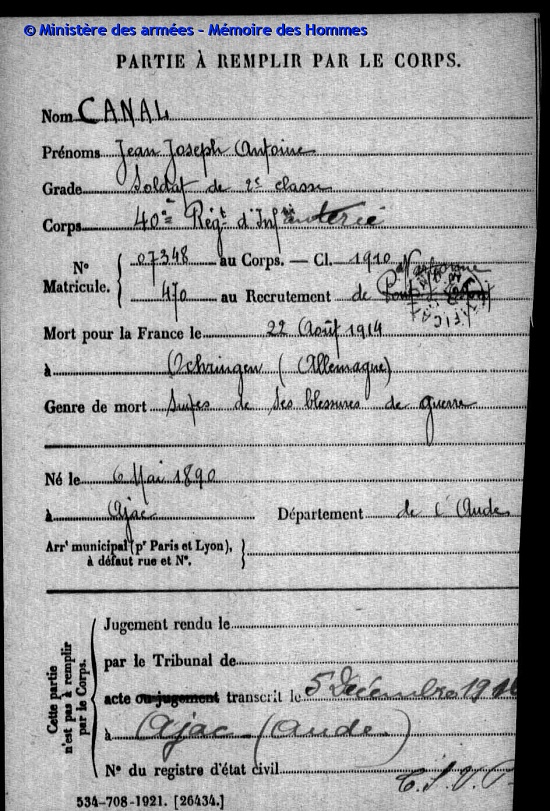 © Ministère des armées - Mémoire des Hommes
PARTIE À REMPLIR PAR LE CORPS.
Nom CANAL
Prénoms Jean Joseph Antoine
Grade Soldat de 2e classe
Corps 40me Régt d'Infanterie
N° Matricule. { 07348 au Corps. — Cl. 1910
470 au Recrutement de Narbonne
Mort pour la France le 22 Août 1914
à Oehringen (Allemagne)
Genre de mort Suites de ses blessures de guerre
Né le 6 Mai 1890
à Ajac Département de l'Aude
Arrt municipal (pr Paris et Lyon), à défaut rue et N°. }
Cette partie n'est pas à remplir par le Corps. {
Jugement rendu le
par le Tribunal de
acte ou jugement transcrit le 5 Décembre 19
à Ajac (Aude)
N° du registre d'état civil
534-708-1921. [26434.]